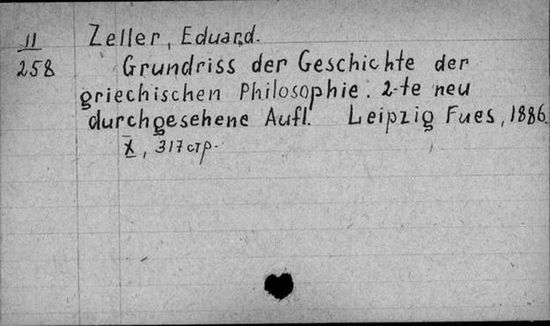 II
258
Zeller, Eduard.
Grundriss der Geschichte der
griechischen Philosophie. 2-te neu
durchgesehene Aufl. Leipzig Fues, 1886.
X, 317 стр.